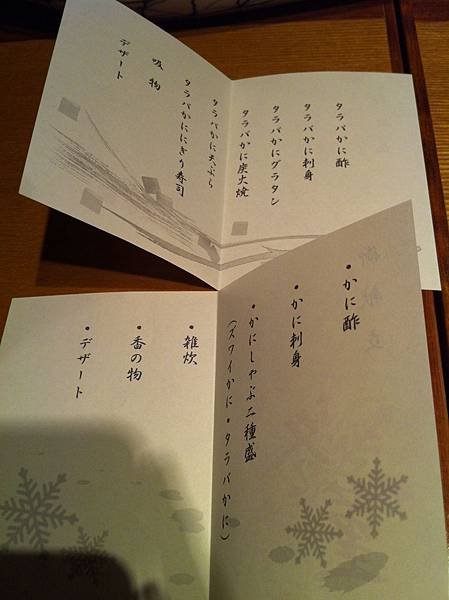 タラバかに酢
タラバかに刺身
タラバかにグラタン
タラバかに炭火焼
タラバかに天ぷら
タラバかににぎり寿司
吸物
デザート
・かに酢
・かに刺身
・かにしゃぶ二種盛
(ズワイかに・タラバかに)
・雑炊
・香の物
・デザート